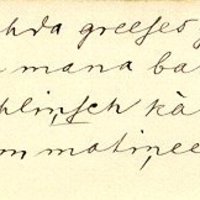 hda greeses
mana ba
hlinsch kà
m matiņee